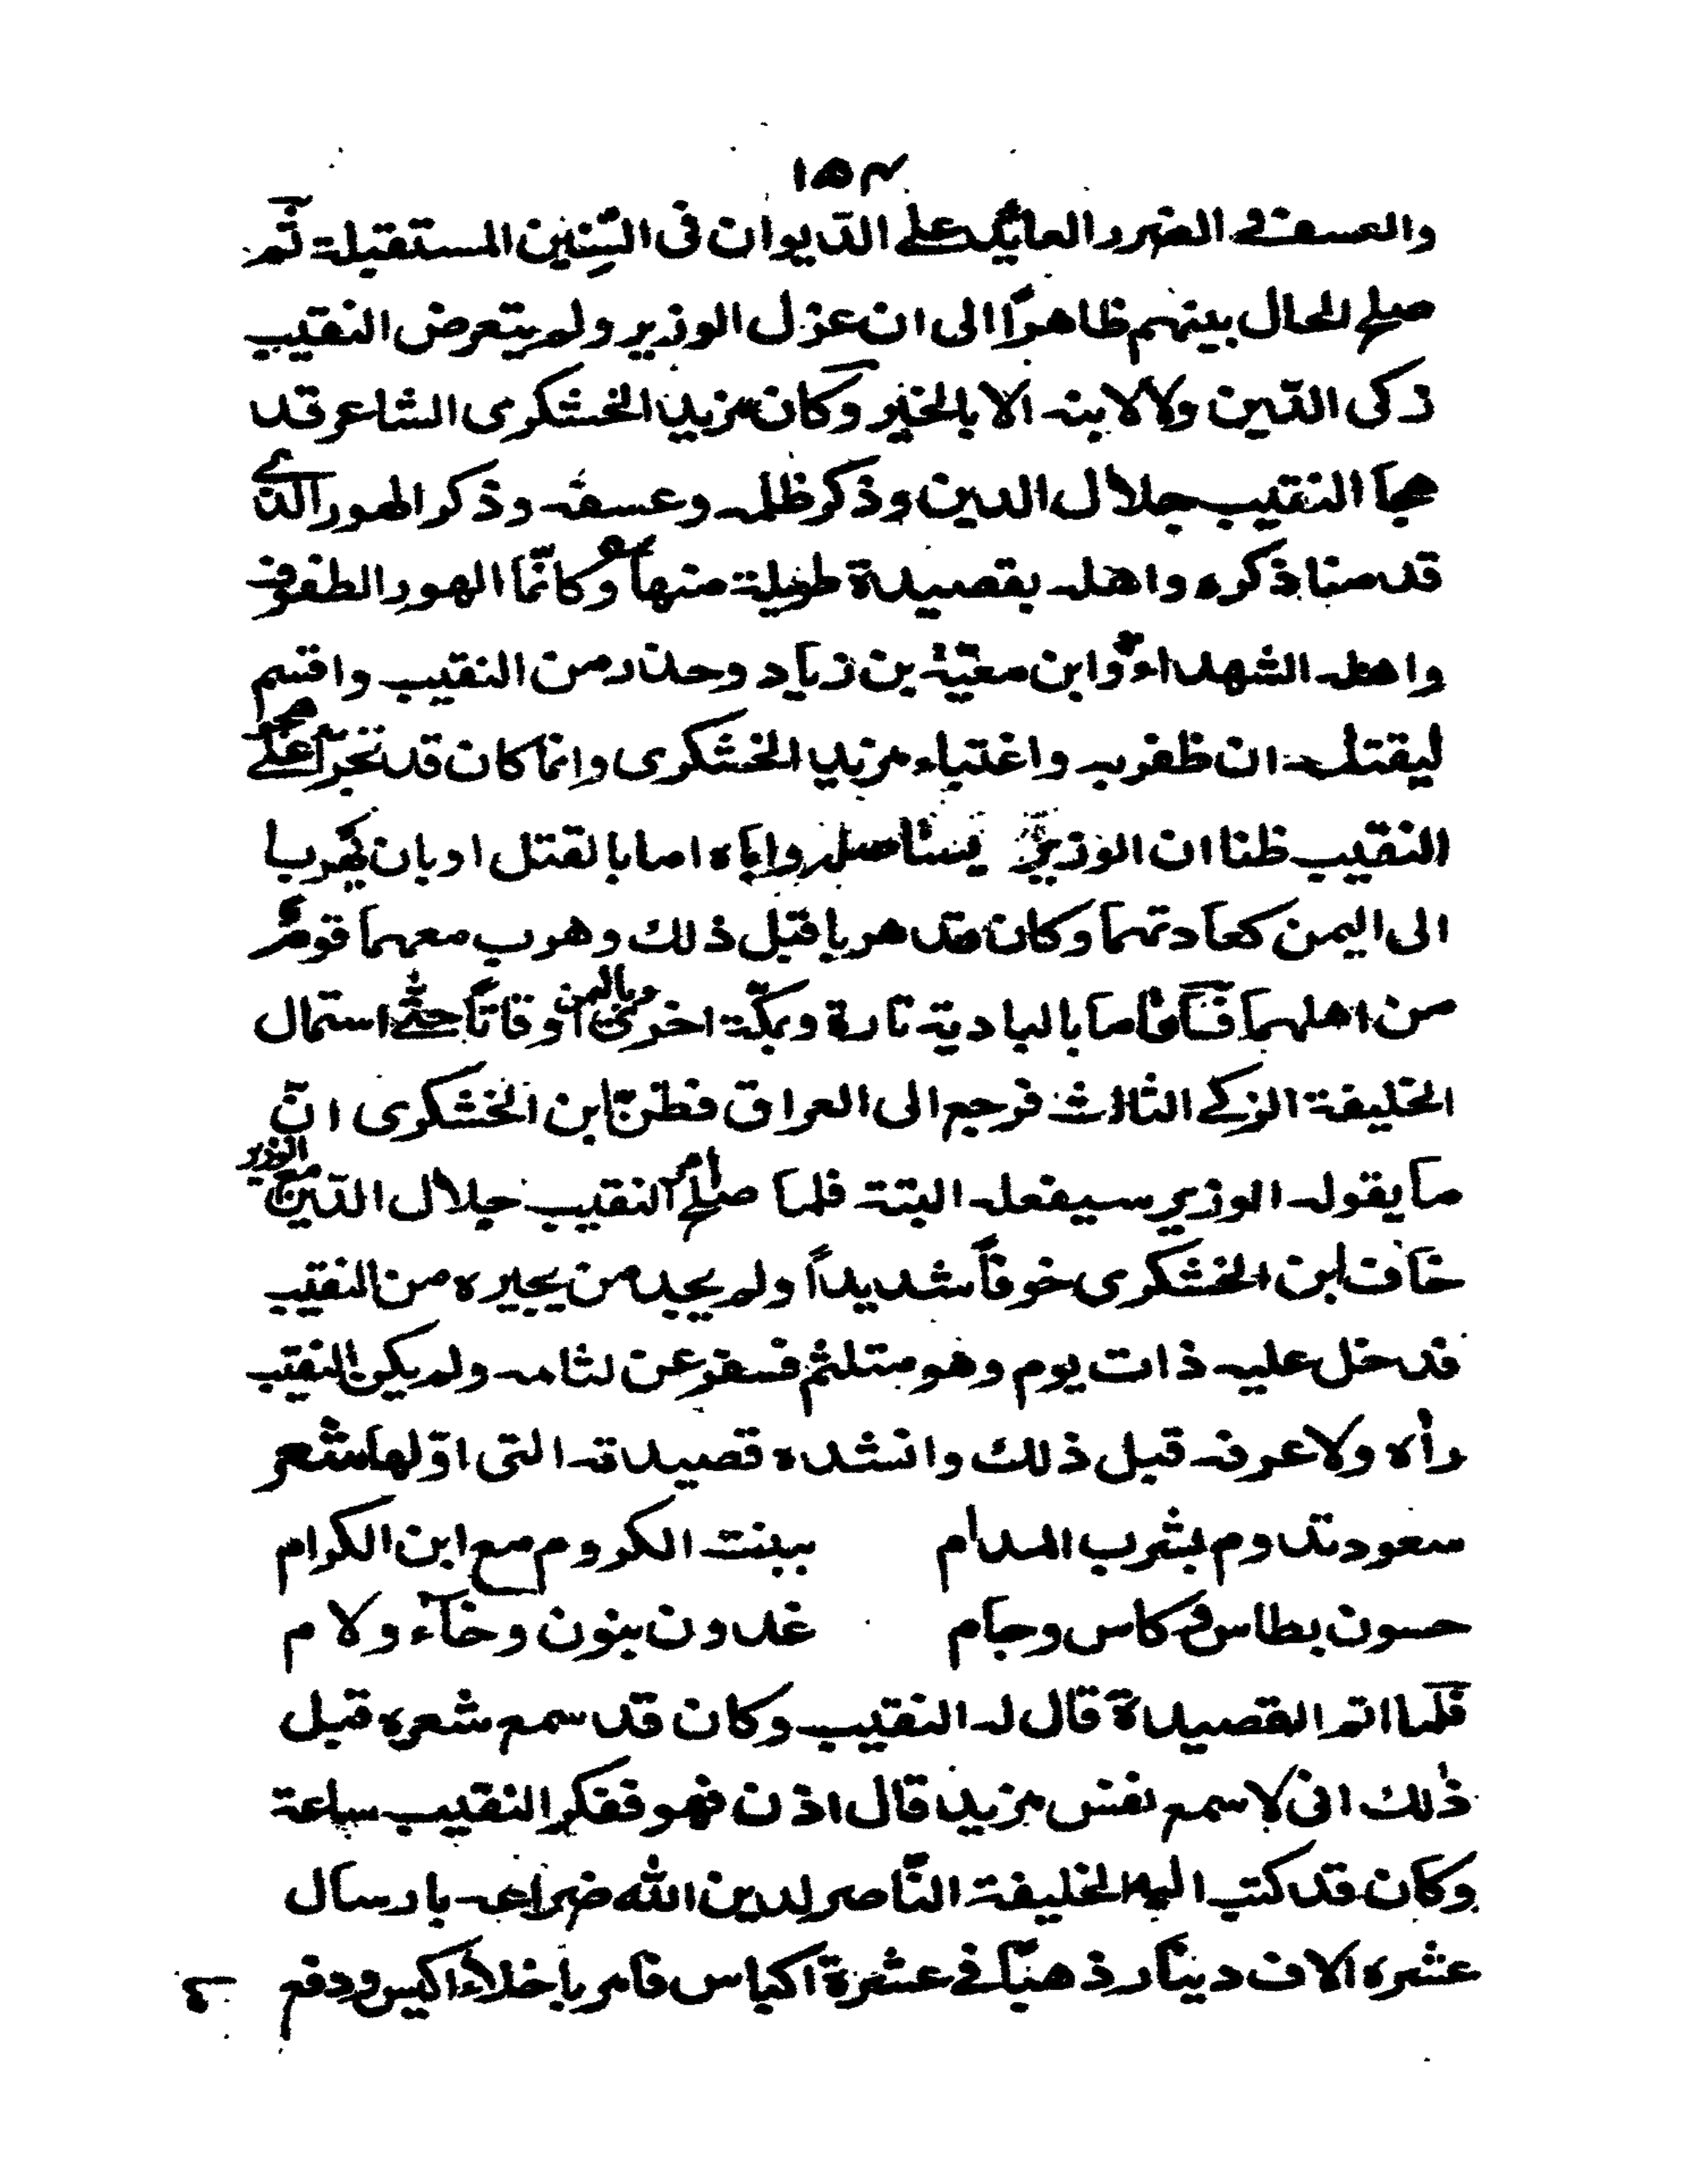 ١٥٣
والعسف فى الضرر العايد على الدّيوان فى السّنين المستقبلة ثمّ
صلح الحال بينهم ظاهراً الى ان عزل الوزير ولم يتعرض النقيب
زكى الدّين ولا لابنه الا بالخير وكان مزيد الخشكرى الشاعر قد
هجا النقيب جلال الدين وذكر ظلمه وعسفه وذكر الهور الذى
قدمنا ذكره واهله بقصيدة طويلة منها وكانّما الهور الطفوف
واهله الشهداء وابن معيّة بن زياد وحذر من النقيب واقسم
ليقتلنه ان ظفر به واغتياء مزيد الخشكرى وانما كان قد تجرّا على هجو
النقيب ظنا ان الوزير يستاصله واباه اما بالقتل او بان يهربا
الى اليمن كعادتهما وكان قد هربا قبل ذلك وهرب معهما قوم
من اهلهما فاقاما بالبادية تارة وبمكّة اخرى وباليمن اوقاتاً حتّى استمال
الخليفة الزكى الثالث فرجع الى العراق فظنّ ابن الخشكرى انّ
ما يقوله الوزير سيفعله البتة فلما صلح امر النقيب جلال الدّين مع الوزير
خاف ابن الخشكرى خوفاً شديداً ولم يجد من يجيره من النقيب
فدخل عليه ذات يوم وهو متلثم فسفر عن لثامه ولم يكن النقيب
رأه ولا عرفه قبل ذلك وانشده قصيدته التى اوّلها شعر
سعود تدوم بشرب المدام ببنت الكروم مع ابن الكرام
حسون بطاس وكاس وجام غدون بنون وخآء ولام
فلما اتم القصيدة قال له النقيب وكان قد سمع شعره قبل
ذلك انى لاسمع نفس مزيد قال اذن فهو ففكر النقيب ساعة
وكان قد كتب اليه الخليفة النّاصر لدين الله ضراعه بارسال
عشره الاف دينار ذهباً فى عشرة اكياس فامر باخلاء اكيس ودفع